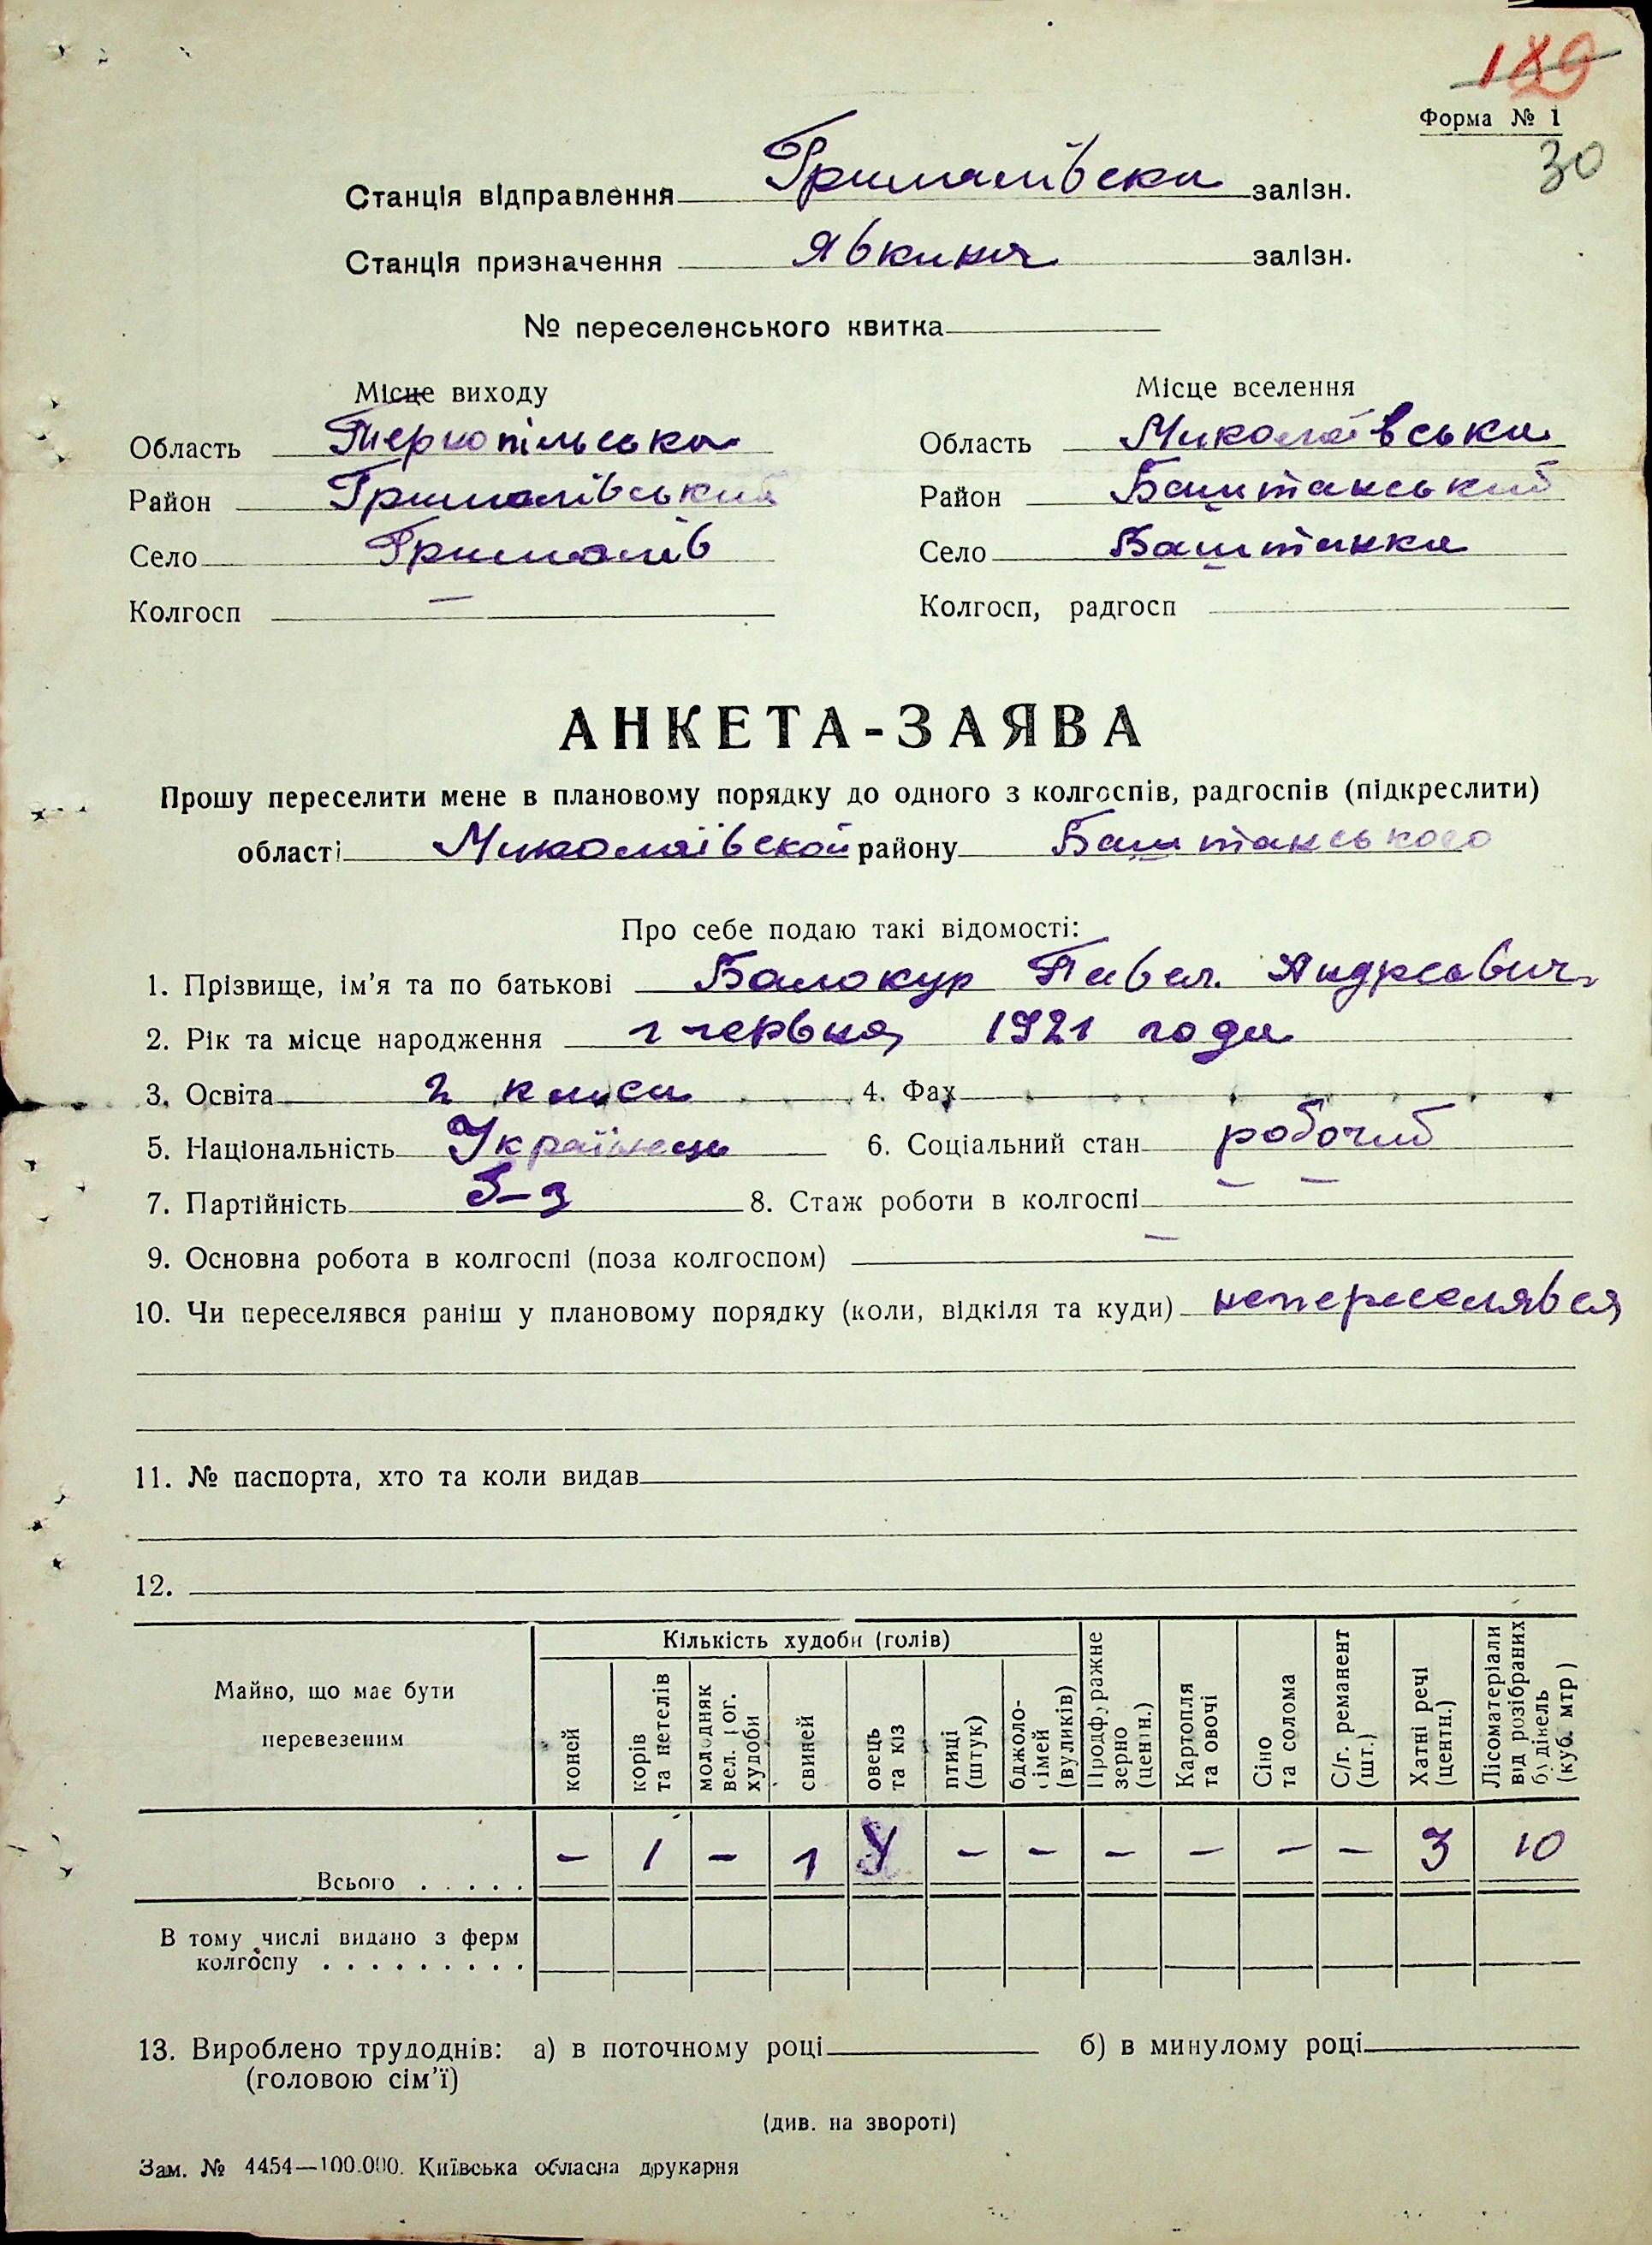 189
Форма № 1
30
Станція відправлення Грималівска залізн.
Станція призначення Явкиня залізн.
№ переселенського квитка
Місце виходу
Місце вселення
Область Тернопільська
Область Миколаївська
Район Грималівський
Район Баштанський
Село Грималів
Село Баштанка
Колгосп —
Колгосп, радгосп
АНКЕТА-ЗАЯВА
Прошу переселити мене в плановому порядку до одного з колгоспів, радгоспів (підкреслити)
області Миколаївской району Баштанського
Про себе подаю такі відомості:
1. Прізвище, ім'я та по батькові Балокур Павел. Андреевич
2. Рік та місце народження 1 червня 1921 года
3. Освіта 2 класи 4. Фах
5. Національність Українець 6. Соціальний стан робочий
7. Партійність Б-з 8. Стаж роботи в колгоспі — —
9. Основна робота в колгоспі (поза колгоспом) —
10. Чи переселявся раніш у плановому порядку (коли, відкіля та куди) непереселявся
11. № паспорта, хто та коли видав
12.
Майно, що має бути перевезеним
Кількість худоби (голів)
коней
корів та нетелів
молодняк вел. рог. худоби
свиней
овець та кіз
птиці (штук)
бджоло-сімей (вуликів)
Продфуражне зерно (центн.)
Картопля та овочі
Сіно та солома
С/г. реманент (шт.)
Хатні речі (центн.)
Лісоматеріали від розібраних будівель (куб. мтр)
Всього . . . . . – 1 – 1 – – – – – – 3 10
В тому числі видано з ферм
колгоспу . . . . . . . . .
13. Вироблено трудоднів: а) в поточному році б) в минулому році
(головою сім'ї)
(див. на звороті)
Зам. № 4454—100.000. Київська обласна друкарня